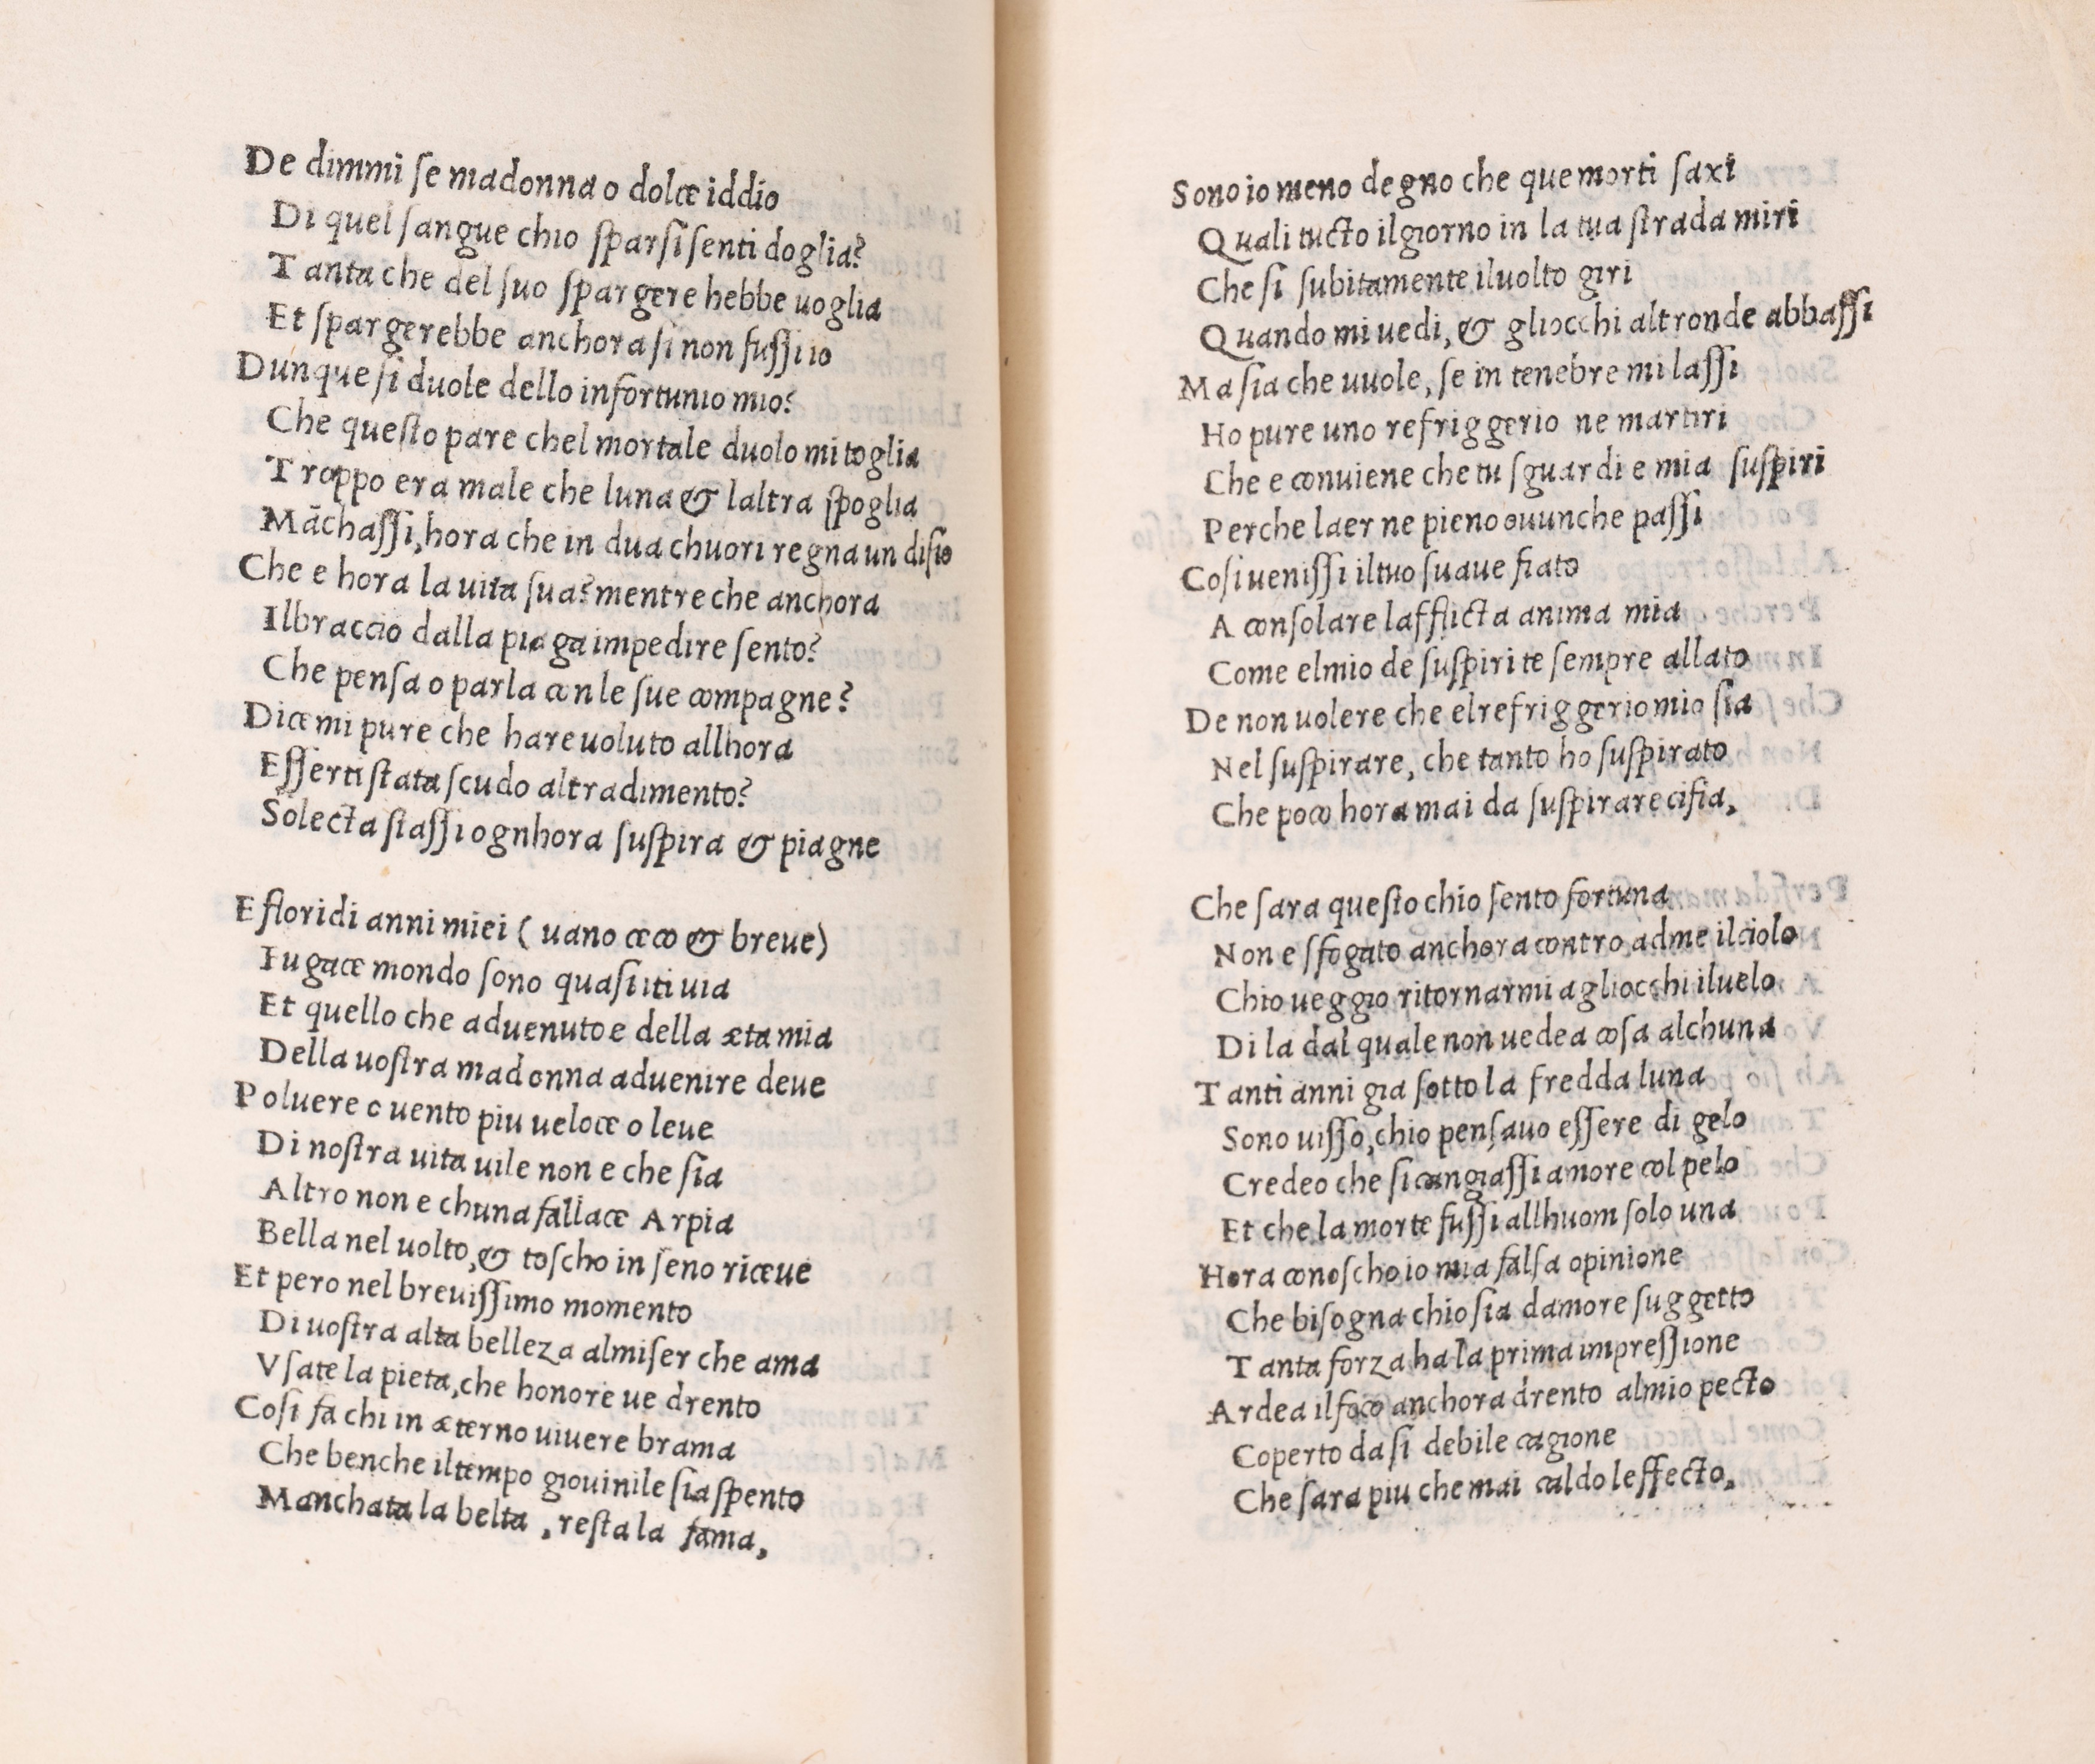 De dimmi ſe madonna o dolce iddio
Di quel ſangue chio ſparſi ſenti doglia?
Tanta che del ſuo ſpargere hebbe uoglia
Et ſpargerebbe anchora ſi non fuſſi io
Dunque ſi duole dello infortunio mio?
Che queſto pare chel mortale duolo mi toglia
Troppo era male che luna & laltra ſpoglia
Mãchaſſi, hora che in dua chuori regna un diſio
Che e hora la uita ſua? mentre che anchora
Il braccio dalla piaga impedire ſento?
Che penſa o parla con le ſue compagne?
Dicemi pure che hare uoluto allhora
Eſſerti ſtata ſcudo al tradimento?
Solecta ſtaſſi ognhora ſuſpira & piagne
E floridi anni miei ( uano ceco & breue)
Fugace mondo ſono quaſi iti uia
Et quello che aduenuto e della æta mia
Della uoſtra madonna aduenire deue
Poluere o uento piu ueloce o leue
Di noſtra uita uile non e che ſia
Altro non e chuna fallace Arpia
Bella nel uolto, & toſcho in ſeno riceue
Et pero nel breuiſſimo momento
Di uoſtra alta belleza al miſer che ama
Vſate la pieta, che honore ue drento
Coſi fa chi in æterno uiuere brama
Che benche il tempo giouinile ſia ſpento
Manchata la belta, reſta la fama,
Sono io meno degno che que morti ſaxi
Quali tucto il giorno in la tua ſtrada miri
Che ſi ſubitamente il uolto giri
Quando mi uedi, & gliocchi altronde abbaſſi
Ma ſia che uuole, ſe in tenebre mi laſſi
Ho pure uno refriggerio ne martiri
Che e conuiene che tu ſguardi e mia ſuſpiri
Perche laer ne pieno ouunche paſſi
Coſi ueniſſi il tuo ſuaue fiato
A conſolare lafflicta anima mia
Come el mio de ſuſpiri te ſempre allato
De non uolere che el refriggerio mio ſia
Nel ſuſpirare, che tanto ho ſuſpirato
Che poco hora mai da ſuſpirare ci fia,
Che ſara queſto chio ſento fortuna
Non e ſfogato anchora contro adme il ciolo
Chio ueggio ritornarmi a gliocchi il uelo
Di la dal quale non uedea coſa alchuna
Tanti anni gia ſotto la fredda luna
Sono uiſſo, chio penſauo eſſere di gelo
Credeo che ſi cangiaſſi amore col pelo
Et che la morte fuſſi allhuom ſolo una
Hora conoſcho io mia falſa opinione
Che biſogna chio ſia damore ſuggetto
Tanta forza ha la prima impreſſione
Ardea il foco anchora drento al mio pecto
Coperto da ſi debile cagione
Che ſara piu che mai caldo leffecto,